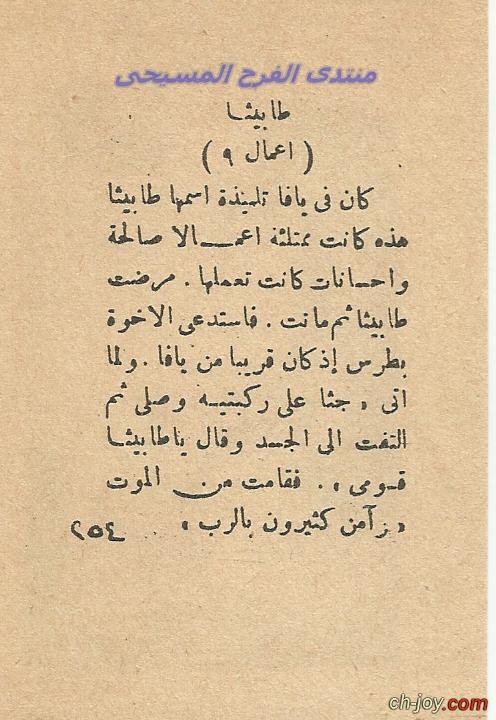 منتدى الفرح المسيحى
طابيثا
( اعمال ٩ )
كان فى يافا تلميذة اسمها طابيثا
هذه كانت ممتلئة اعمالا صالحة
واحسانات كانت تعملها . مرضت
طابيثا ثم ماتت . فاستدعى الاخوة
بطرس إذ كان قريبا من يافا . ولما
اتى « جثا على ركبتيه وصلى ثم
التفت الى الجسد وقال يا طابيثا
قومى » . فقامت من الموت
« وآمن كثيرون بالرب » ٢٥٤
ch-joy.com